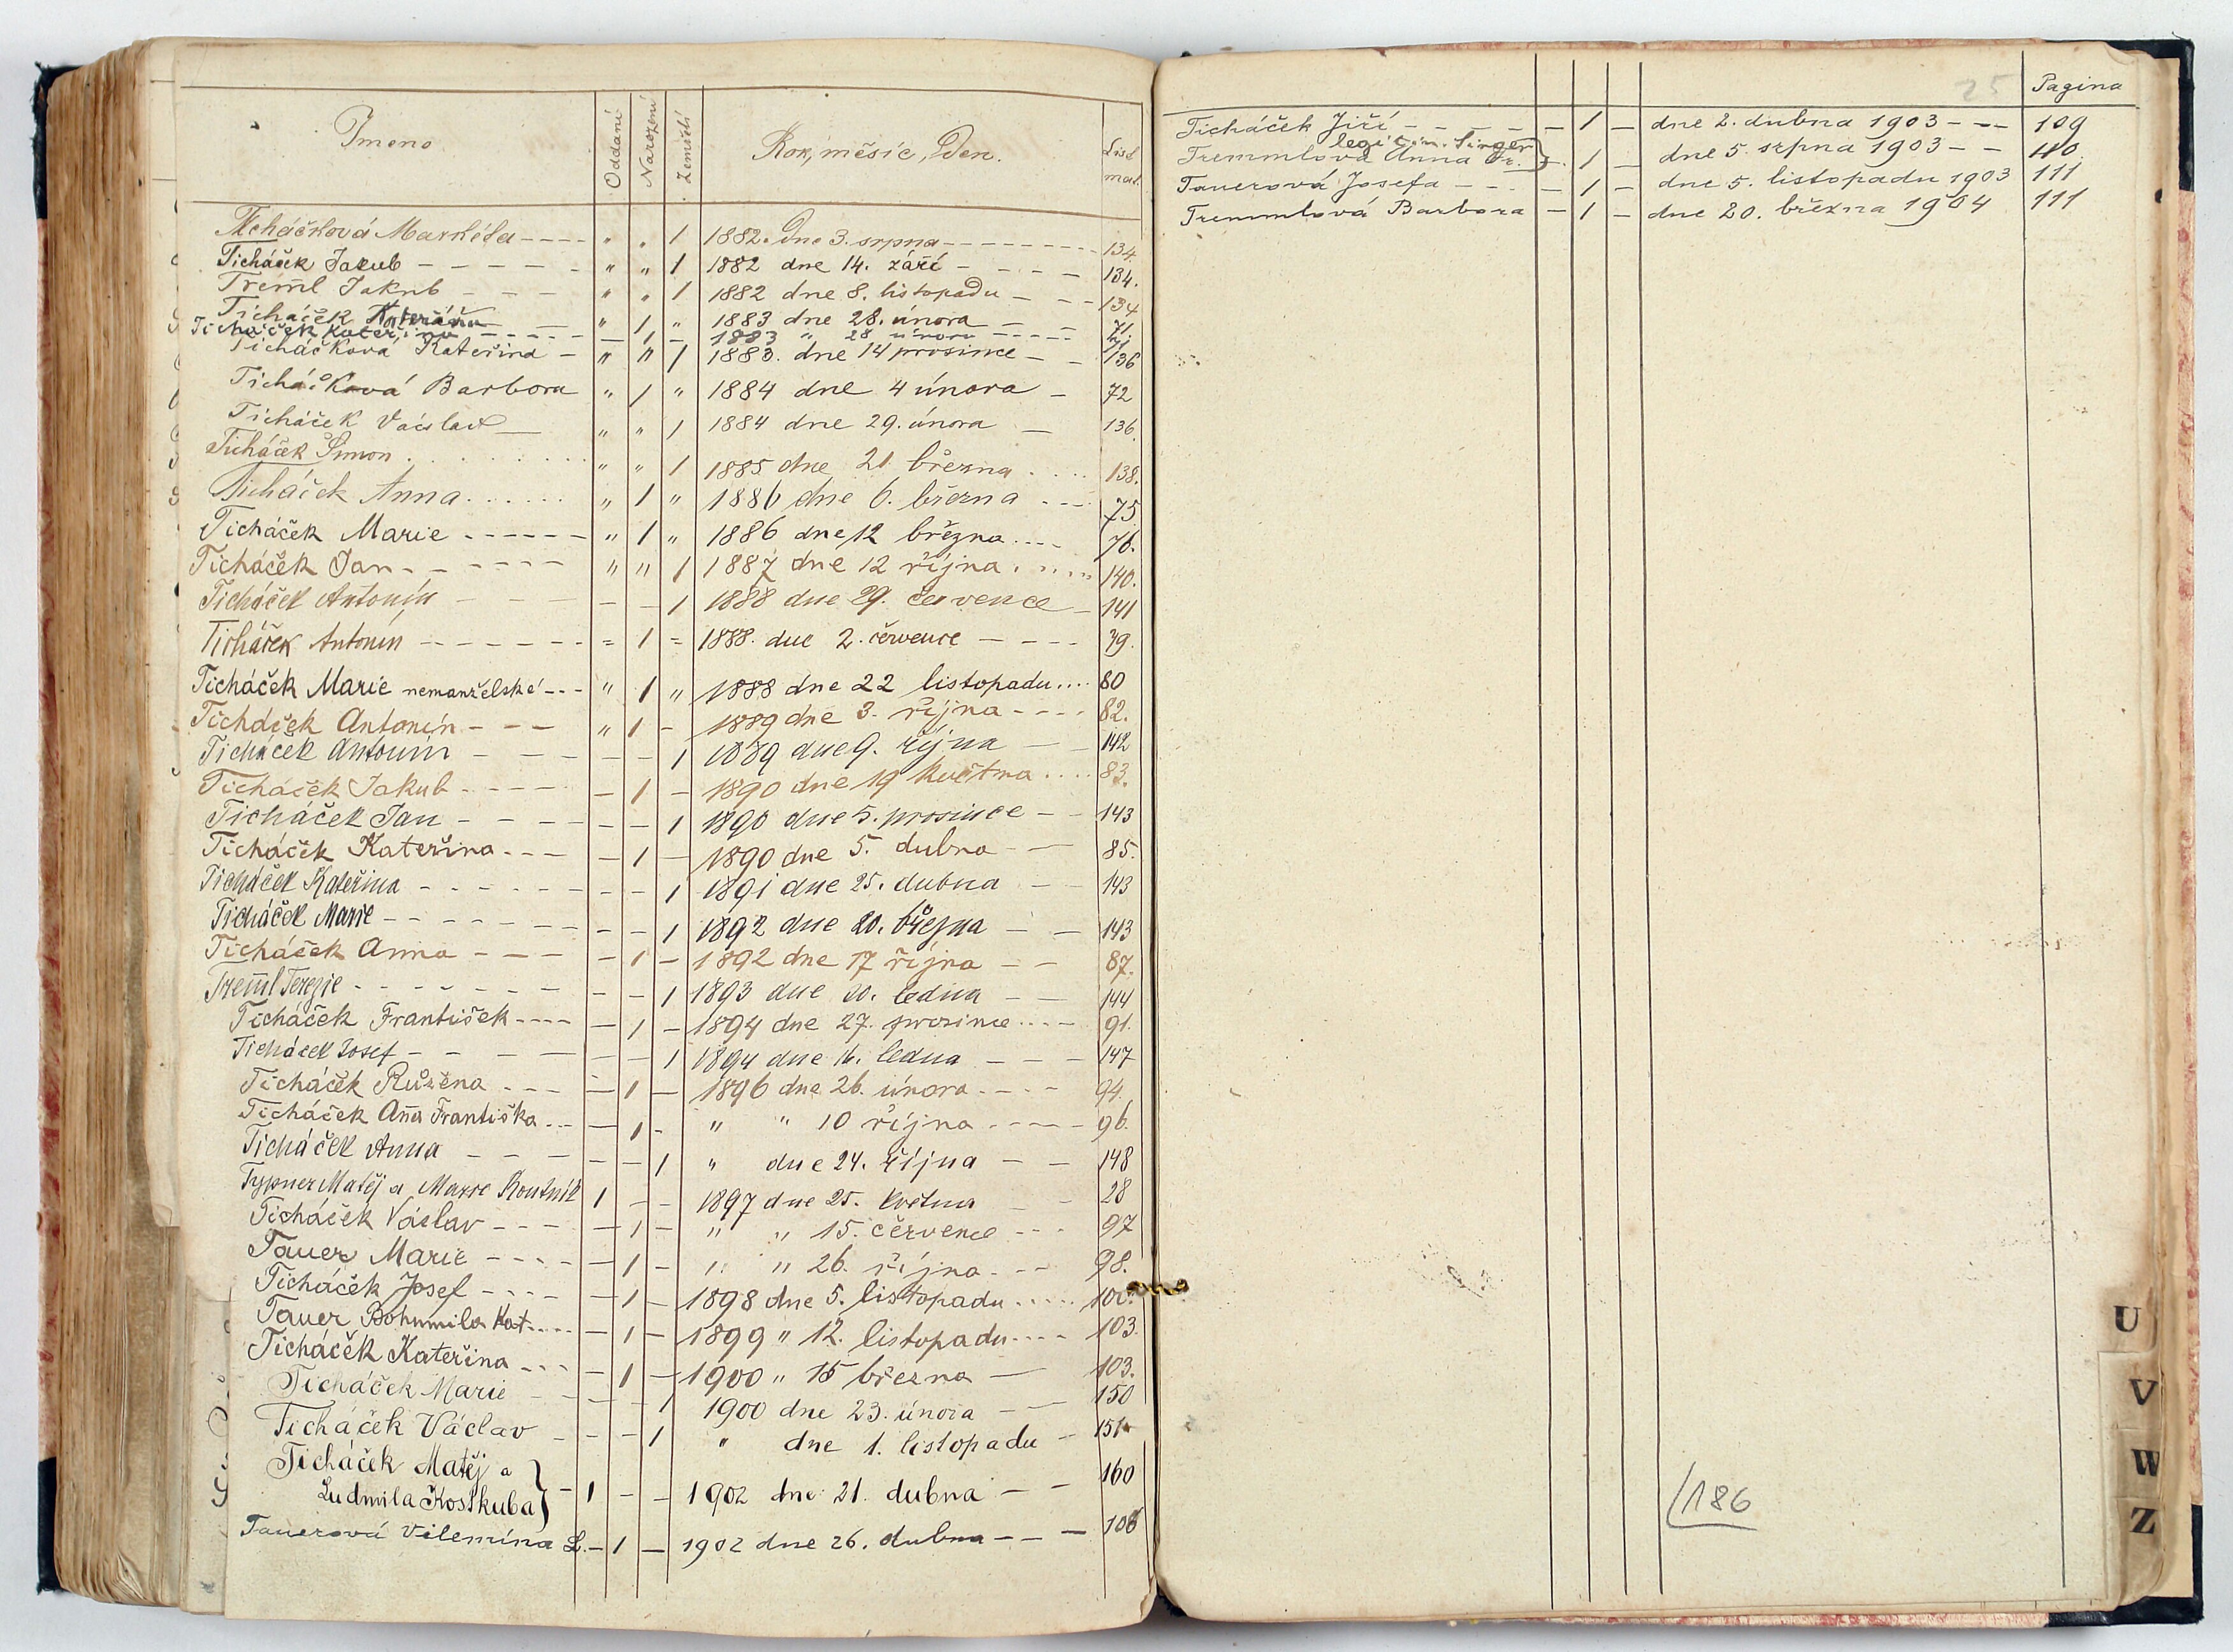 Jmeno Oddaní Narození Zemřelí Rok, měsíc, Den. List mat.
Ticháčková Markéta - - - - " " 1 1882. dne 3. srpna - - - - - - - - 134.
Ticháček Jakub - - - - - - " " 1 1882 dne 14. září - - - - - 134.
Treml Jakub - - - " " 1 1882 dne 8. listopadu - - - 134
Ticháček Kateřina - - " 1 " 1883 dne 28. února - - 71.
Ticháček Kateřina - - - - - - 1 - 1883 " 28 února - - - - - 71
Ticháčková Kateřina - " " 1 1883. dne 14 prosince - - 136
Ticháčková Barbora " 1 " 1884 dne 4 února - 72
Ticháček Václav - " " 1 1884 dne 29. února - 136.
Ticháček Šimon . . . . . . . " " 1 1885 dne 21 března . . . . 138.
Ticháček Anna . . . . . . " 1 " 1886 dne 6. března . - - 75
Ticháček Marie - - - - - - " 1 " 1886 dne 12 března . . . . 76.
Ticháček Jan - - - - - - " " 1 1887 dne 12 října . . . . . 140.
Ticháček Antonín - - - - 1 1888 dne 29. července - 141
Ticháček Antonín - - - - - - - = 1 = 1888. dne 2. července - - - - 79.
Ticháček Marie nemanželské - - - " 1 " 1888 dne 22 listopadu . . . . 80
Ticháček Antonín - - - " 1 - 1889 dne 3. října - - - - 82.
Ticháček Antonín - - - - - 1 1889 dne 9. října - - 142
Ticháček Jakub - - - - - - 1 - 1890 dne 19 květma . . . . 83.
Ticháček Jan - - - - - - 1 1890 dne 5. prosince - - 143
Ticháček Kateřina - - - - 1 - 1890 dne 5. dubna - - 85.
Ticháček Kateřina - - - - - - - - 1 1891 dne 25. dubna - - 143
Ticháček Marie - - - - - - - - 1 1892 dne 20. března - - 143
Ticháček Anna - - - - 1 - 1892 dne 17 října - - 87.
Treml Terezie - - - - - - - - - 1 1893 dne 20. ledna - - 144
Ticháček František - - - - - 1 - 1894 dne 27. prosince . . . - 91.
Ticháček Josef - - - - - - 1 1894 dne 16. ledna - - - 147
Ticháček Růžena - - - - 1 - 1896 dne 26. února - - - - 94.
Ticháček Aña Františka - - - 1 - " " 10 října - - - - - 96.
Ticháček Anna - - - - - 1 " dne 24. října - - 148
Typner Matěj a Marie Koutník 1 - - 1897 dne 25. května - 28
Ticháček Václav - - - - 1 - " " 15. července - - - 97
Tauer Marie - - - - - 1 - " " 26. října - - - 98.
Ticháček Josef - - - - - 1 - 1898 dne 5. listopadu . . . . . 100.
Tauer Bohumila Kat. . . . - 1 - 1899 " 12. listopadu - - - - 103.
Ticháček Kateřina - - - - 1 - 1900 " 15 března - 103.
Ticháček Marie - - - - 1 1900 dne 23. února - - 150
Ticháček Václav - - - 1 " dne 1. listopadu - 151
Ticháček Matěj a
Ludmila Kostkuba } - 1 - - 1902 dne 21. dubna - - 160
Tauerová Vilemína L. - 1 - 1902 dne 26. dubna - - - 106
25 Pagina
Ticháček Jiří - - - - - - 1 - dne 2. dubna 1903 - - - 109
legitim. Singer
Tremmlová Anna Fr. } - 1 - dne 5. srpna 1903 - - 110.
Tauerová Josefa - - - - 1 - dne 5. listopadu 1903 111
Tremmlová Barbora - 1 - dne 20. března 1904 111
U
V
W
Z
186